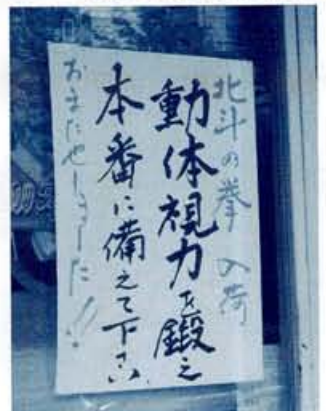 北斗の拳 入荷
動体視力を鍛え
本番に備えて下さい
おまたせしました!!